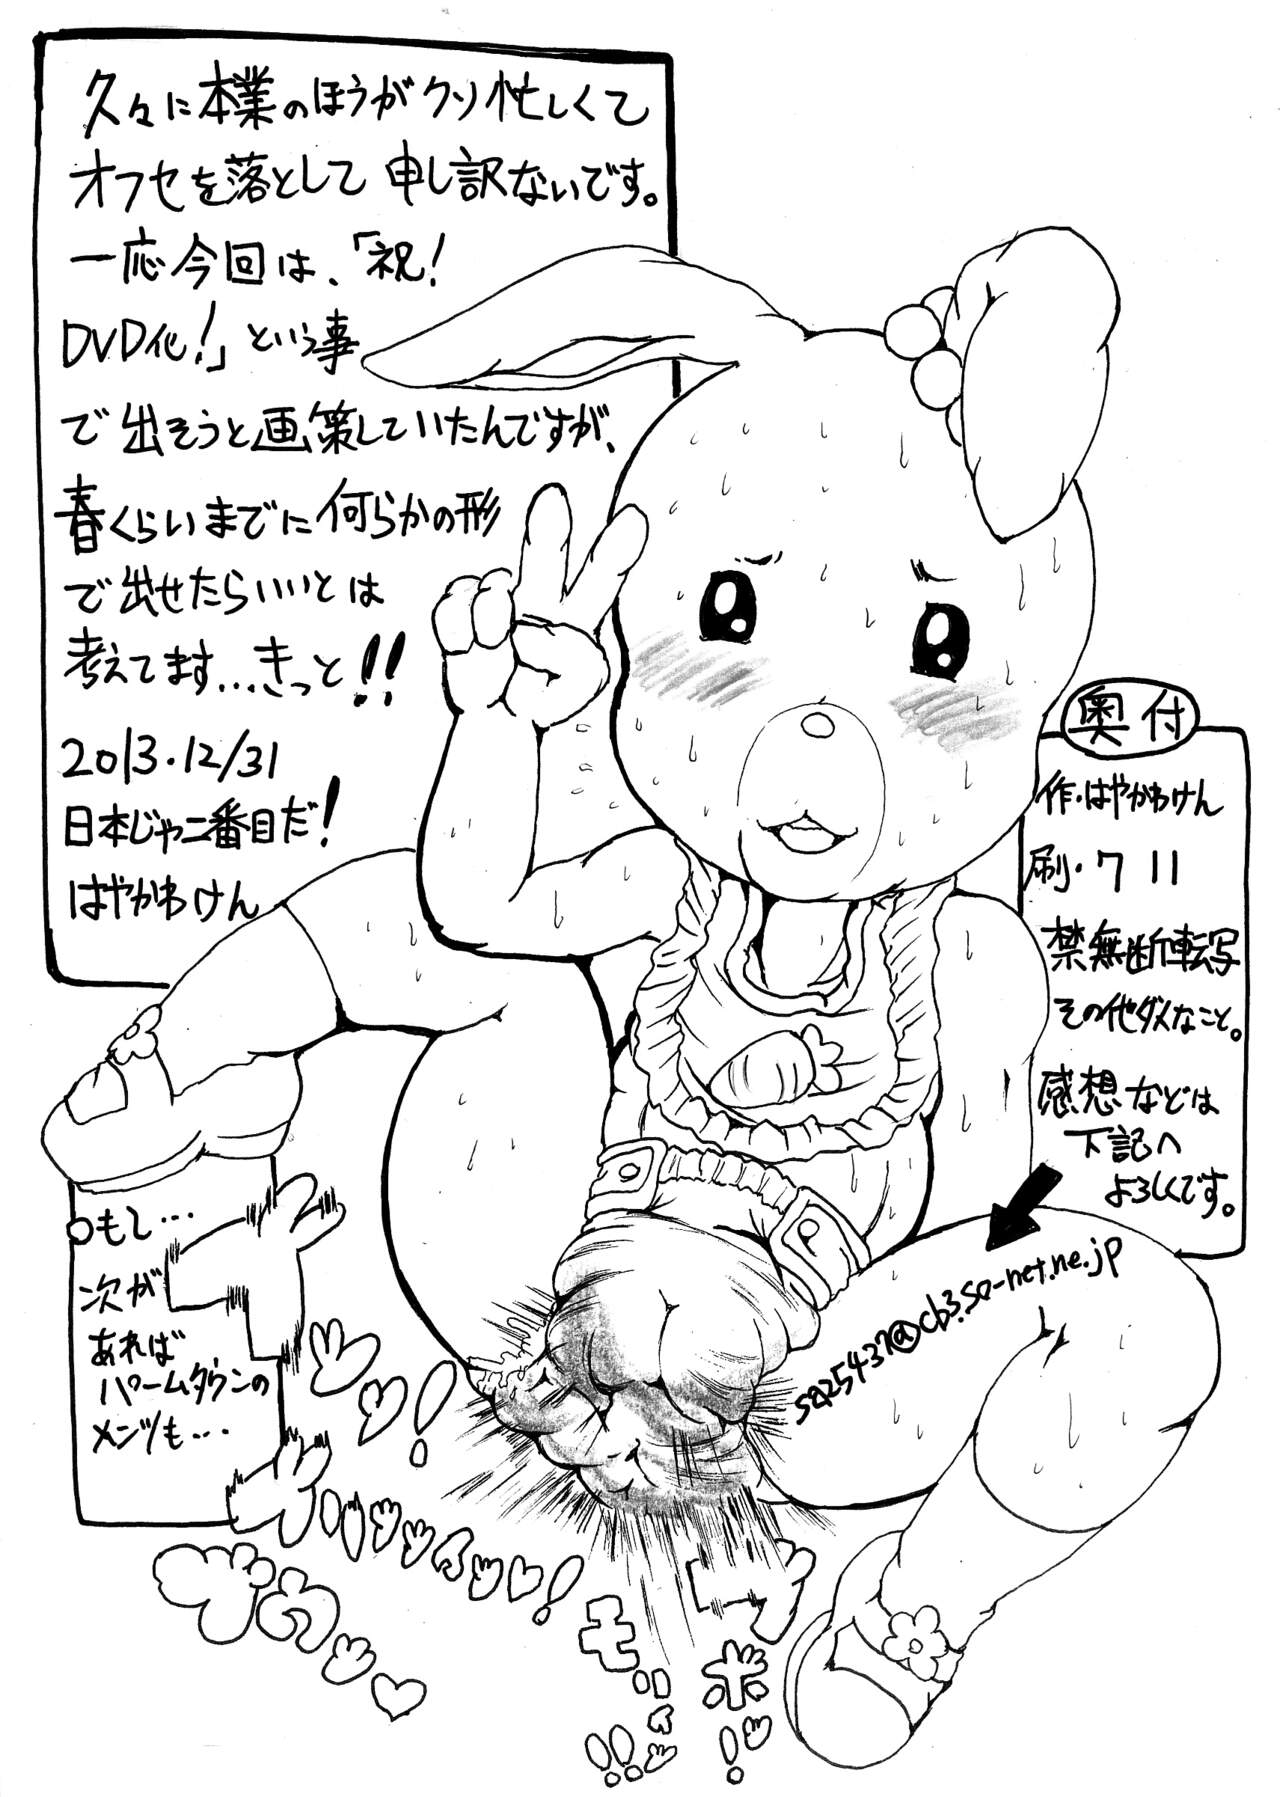 久々に本業のほうがクソ忙しくて
オフセを落として申し訳ないです。
一応今回は、「祝!
DVD化!」という事
で出そうと画策していたんですが、
春くらいまでに何らかの形
で出せたらいいとは
考えてます…きっと!!
2013.12/31
日本じゃ二番目だ!
はやかわけん
奥付
作・はやかわけん
刷・711
禁無断転写
その他ダメなこと。
感想などは
下記へ
よろしくです。
sa25437@cb3.so-net.ne.jp
○もし…
次が
あれば
パームタウンの
メンツも…